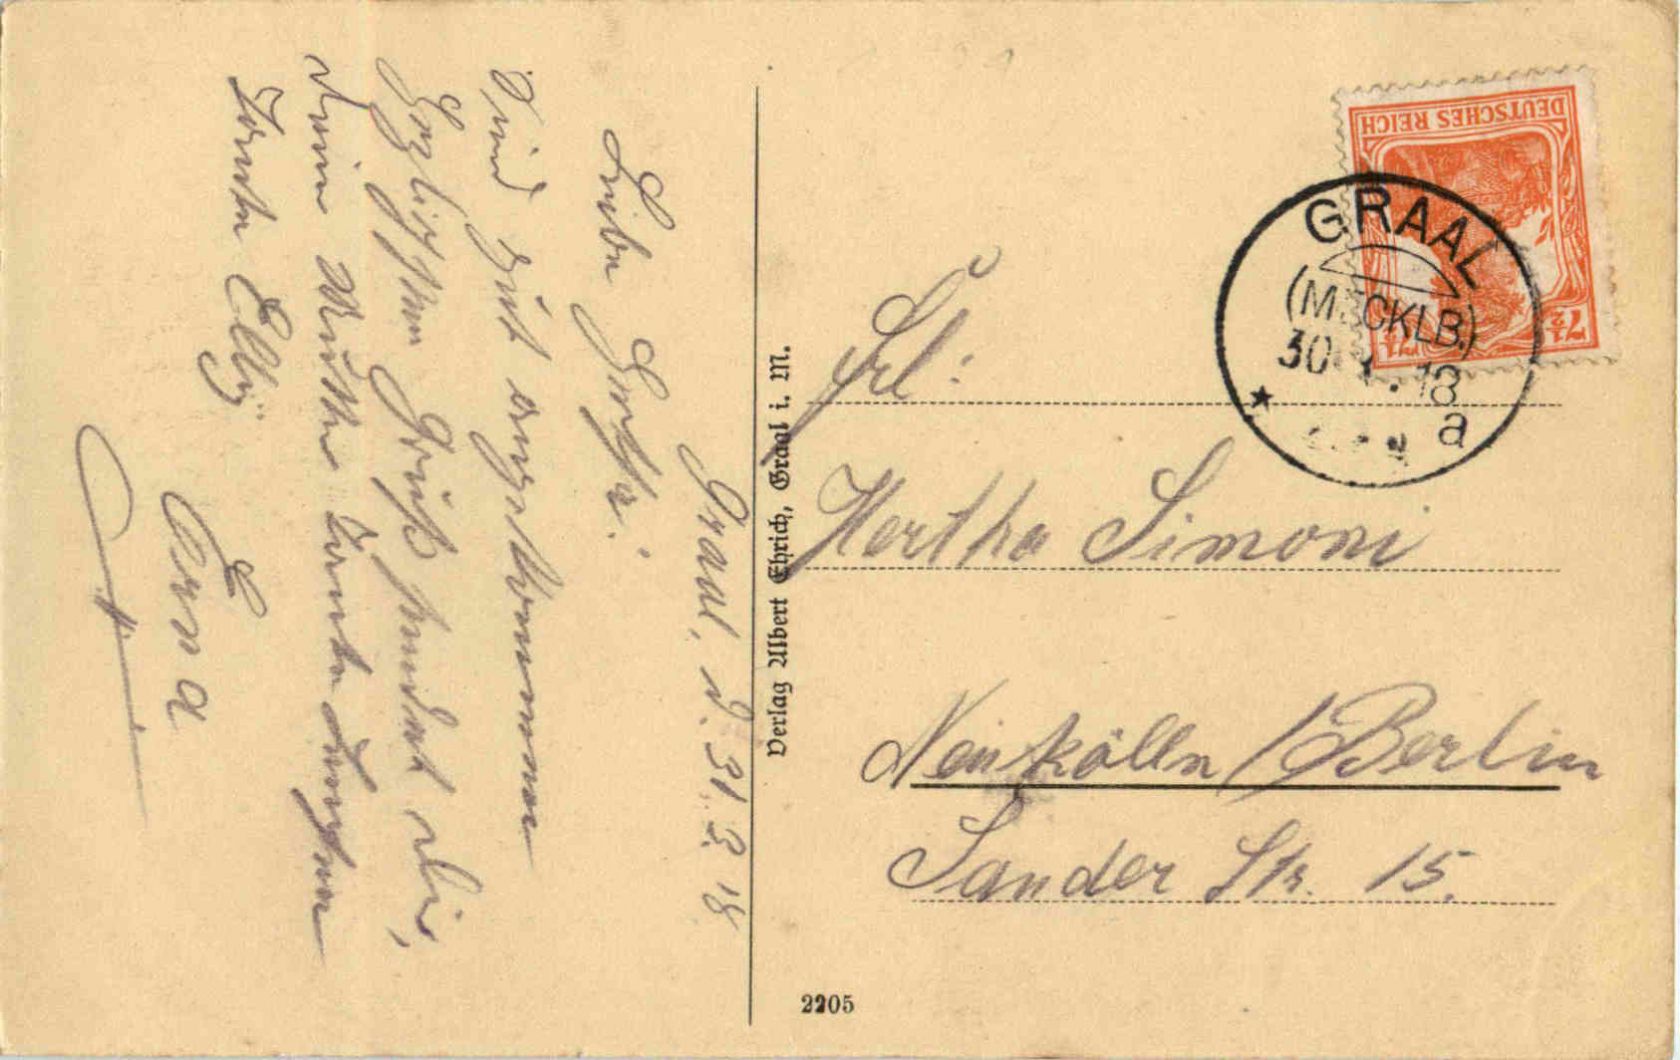 Graal, d. 31.3.18
Liebe Hertha!
Sind gut angekommen
Herzlichsten Gruß sendet dir,
deine Mutter Tante
Tante Elly
Erna
Verlag Albert Ehrich, Graal i. M.
DEUTSCHES REICH
7½ 7½
GRAAL
(MECKLB.)
30 18
a
Frl:
Hertha Simoni
Neukölln / Berlin
Sander Str. 15.
2205